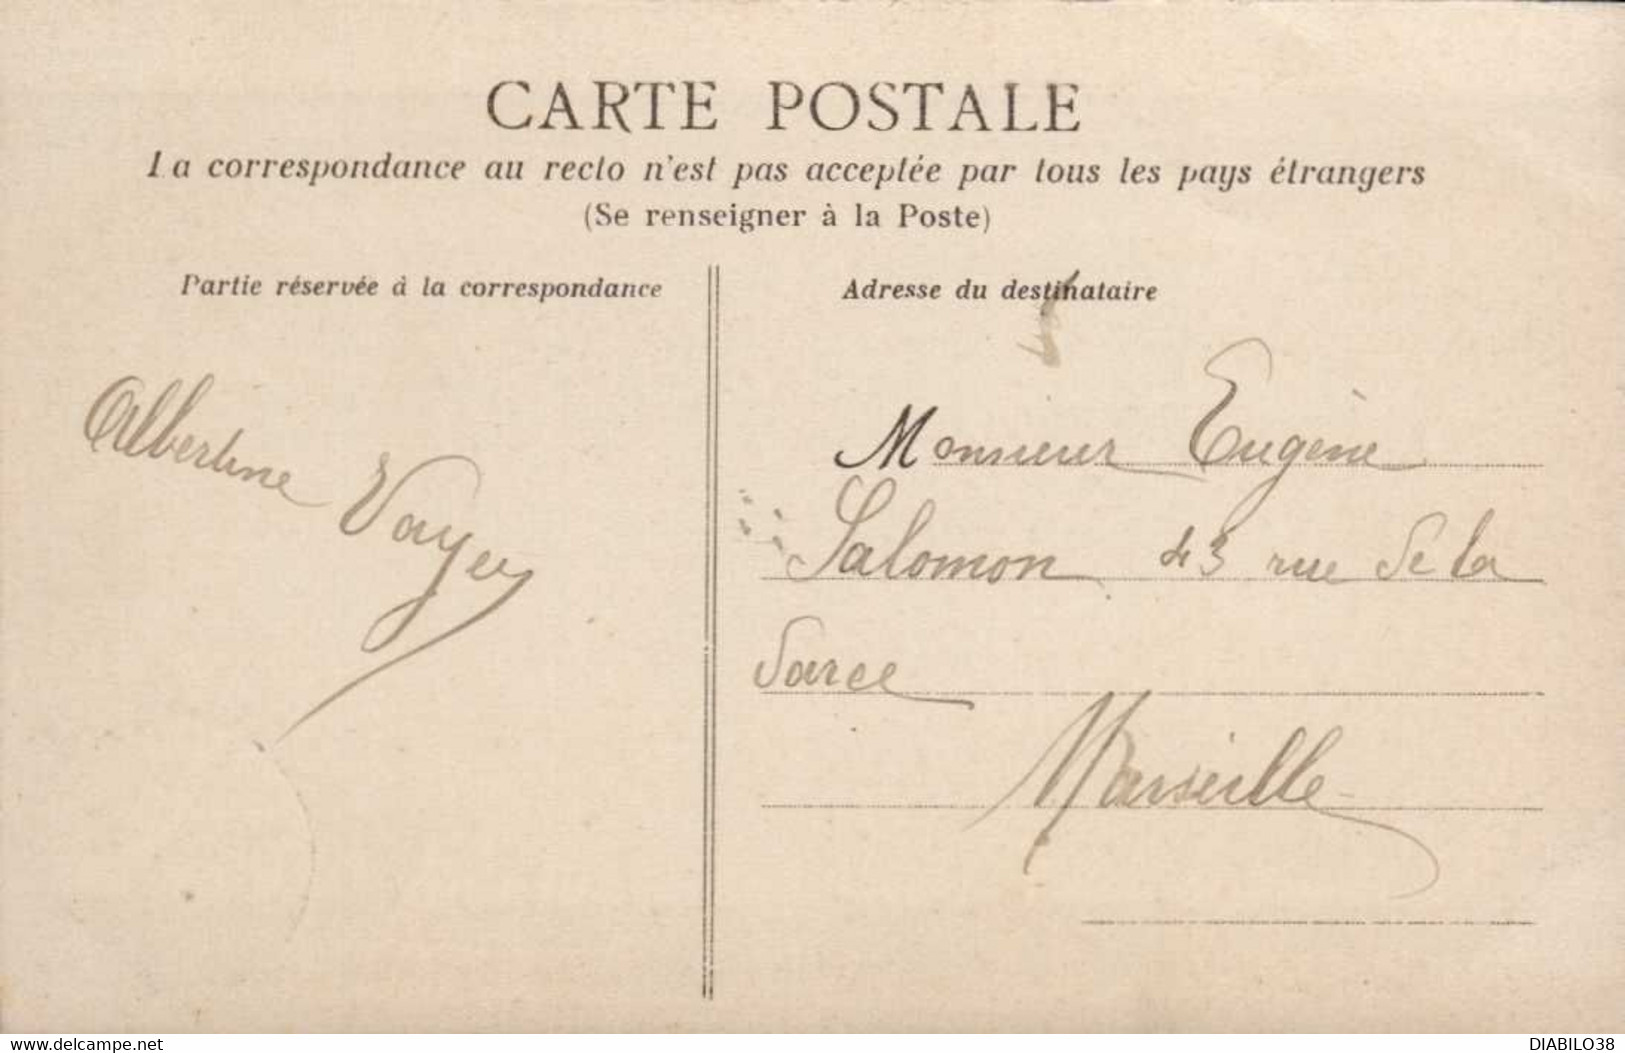 CARTE POSTALE
La correspondance au recto n'est pas acceptée par tous les pays étrangers
(Se renseigner à la Poste)
Partie réservée à la correspondance
Albertine Voyer
Adresse du destinataire
Monsieur Eugène
Salomon 43 rue de la
Darce
Marseille
www.delcampe.net
DIABILO38